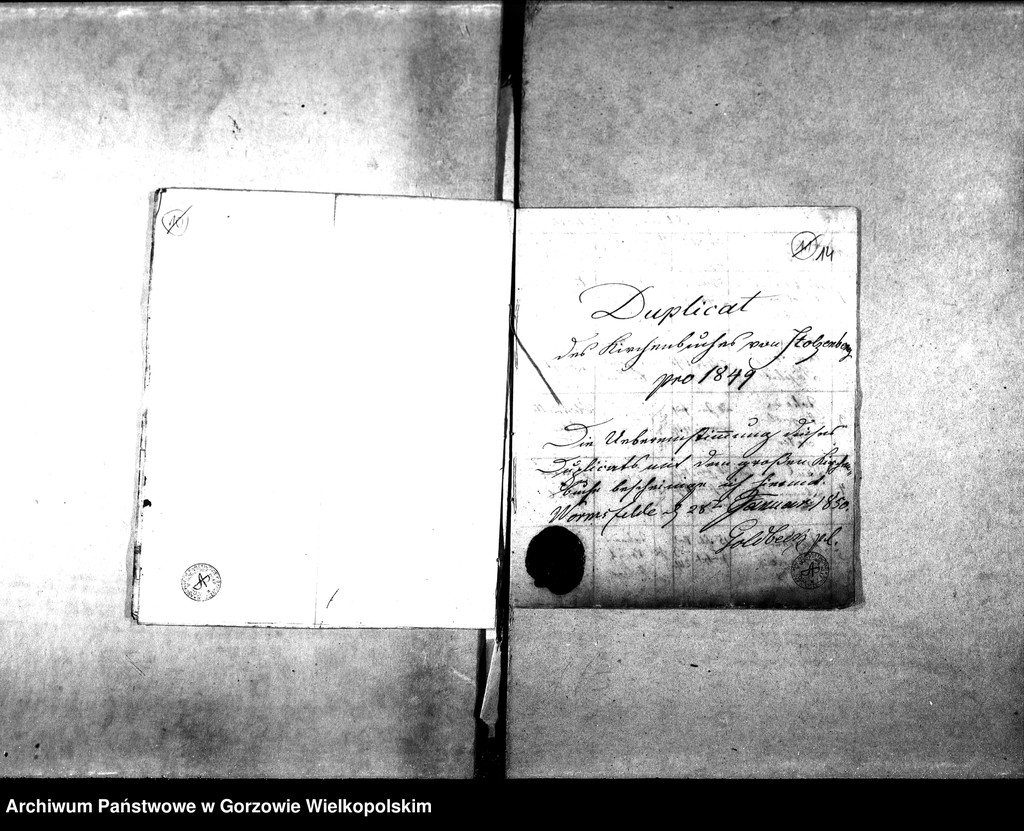 10
11 14
Duplicat
des Kirchenbuches von Stolzenberg
pro 1849
Die Uebereinstimmung dieses
Duplicats mit dem großen Kirchen-
buche bescheinige ich hiermit.
Wormsfelde 28 Januar 1850.
Goldbeck
Archiwum Państwowe w Gorzowie Wielkopolskim